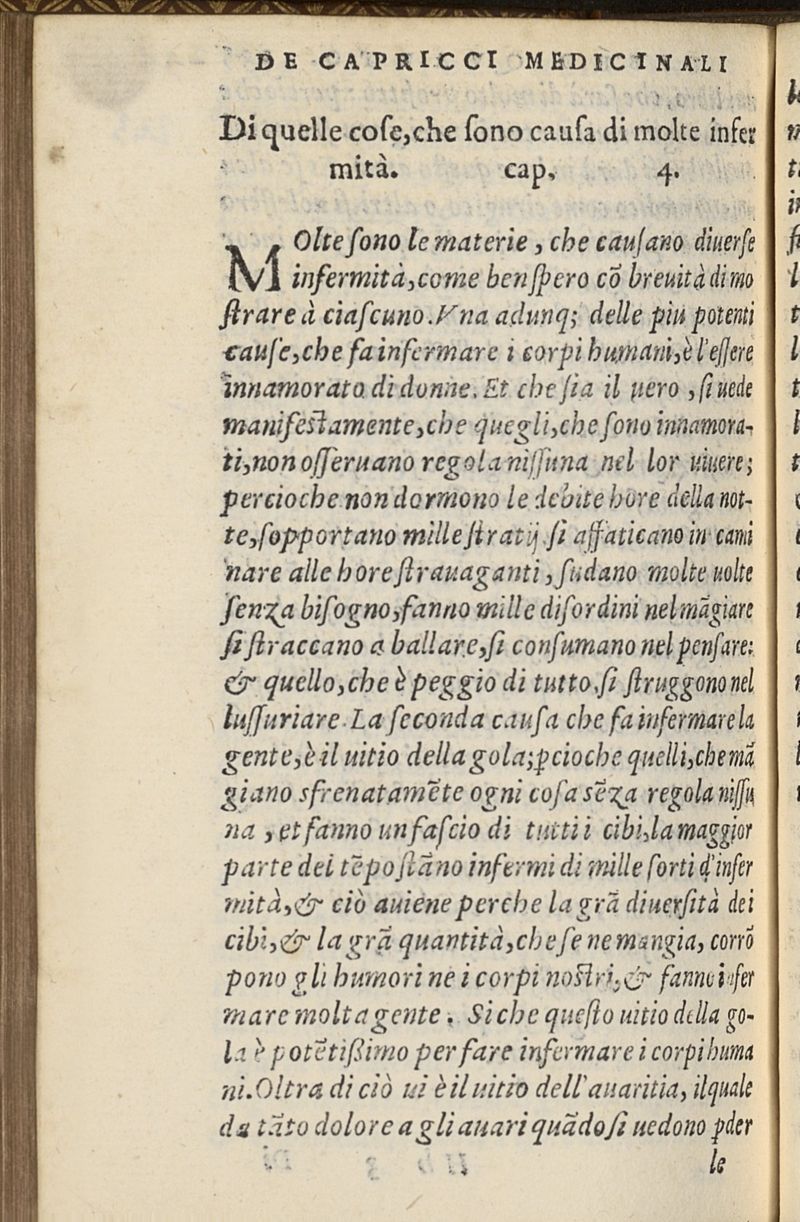 DE CAPRICCI MEDICINALI
Di quelle coſe,che ſono cauſa di molte infer
mità. cap. 4.
MOlte ſono le materie , che cauſano diuerſe
infermità,come ben ſpero cõ breuità dimo
ſtrare à ciaſcuno.Vna adunq; delle piu potenti
cauſe,che fa infermare i corpi humani,è l'eſſere
innamorato di donne. Et che ſia il uero , ſi uede
manifeſtamente,che quegli,che ſono innamora-
ti,non oſſeruano regola niſſuna nel lor uiuere;
percioche non dormono le debite hore della not-
te,ſopportano mille ſtratij ſi affaticano in cami
nare alle hore ſtrauaganti , ſudano molte uolte
ſenza biſogno,fanno mille diſordini nel mãgiare
ſi ſtraccano a ballare,ſi conſumano nel penſare:
& quello,che è peggio di tutto,ſi ſtruggono nel
luſſuriare. La ſeconda cauſa che fa infermare la
gente,è il uitio della gola;ꝑcioche quelli,che mã
giano sfrenatamẽte ogni coſa sẽza regola niſſu
na , et fanno un faſcio di tutti i cibi,la maggior
parte del tẽpo ſtãno infermi di mille ſorti d'infer
mità,& ciò auiene perche la grã diuerſità dei
cibi,& la grã quantità,che ſe ne mangia, corrõ
pono gli humori ne i corpi noſtri,& fanno infer
mare molta gente . Si che queſto uitio della go-
la è potẽtißimo per fare infermare i corpi huma
ni.Oltra di ciò ui è il uitio dell'auaritia, ilquale
da tãto dolore a gli auari quãdo ſi uedono ꝑder
le